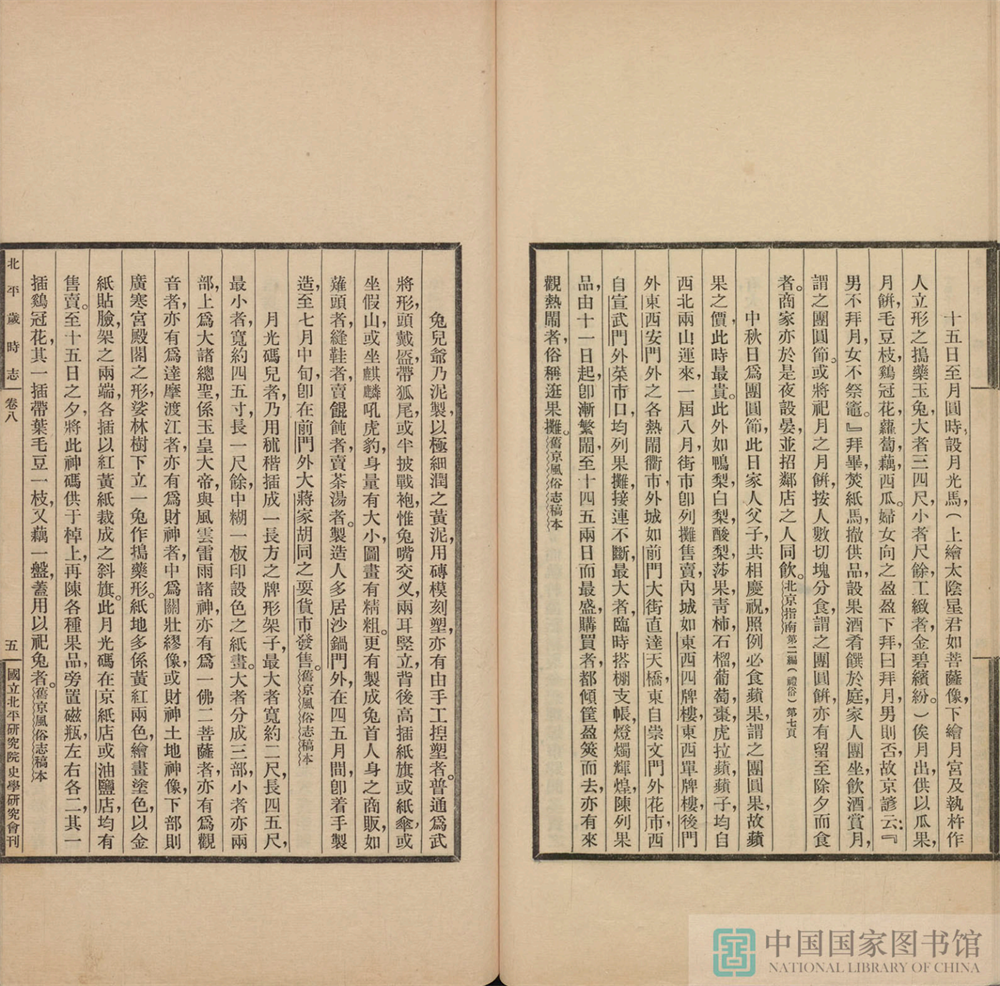 十五日至月圓時，設月光馬，（上繪太陰星君如菩薩像，下繪月宮及執杵作
人立形之搗藥玉兔，大者三四尺，小者尺餘，工緻者金碧繽紛。）俟月出，供以瓜果，
月餅，毛豆枝，鷄冠花，蘿蔔，藕，西瓜。婦女向之盈盈下拜，曰拜月，男則否，故京諺云：『
男不拜月，女不祭竈。』拜畢，焚紙馬，撤供品，設果酒肴饌於庭，家人團坐，飲酒賞月，
謂之團圓節。或將祀月之月餅，按人數切塊分食，謂之團圓餅，亦有留至除夕而食
者。商家亦於是夜設晏，並招鄰店之人同飲。北京指南第二編（禮俗）第七頁
中秋日爲團圓節，此日家人父子共相慶祝，照例必食蘋果，謂之團圓果，故蘋
果之價，此時最貴。此外如鴨梨白梨酸梨莎果青柿石榴葡萄棗虎拉蘋蘋子，均自
西北兩山運來，一屆八月，街市卽列攤售賣，內城如東西四牌樓，東西單牌樓，後門
外，東西安門外之各熱鬧衢市，外城如前門大街直達天橋，東自崇文門外花市，西
自宣武門外菜市口，均列果攤，接連不斷，最大者，臨時搭棚支帳，燈燭輝煌，陳列果
品，由十一日起，卽漸繁鬧，至十四五兩日而最盛，購買者都傾筐盈筴而去，亦有來
觀熱鬧者，俗稱逛果攤。舊京風俗志稿本
兔兒爺乃泥製，以極細潤之黃泥，用磚模刻塑，亦有由手工揑塑者。普通爲武
將形，頭戴盔，帶狐尾，或半披戰袍，惟兔嘴交叉，兩耳竪立，背後高插紙旗或紙傘，或
坐假山，或坐麒麟吼虎豹，身量有大小，圖畫有精粗。更有製成兔首人身之商販，如
薙頭者，縫鞋者，賣餛飩者，賣茶湯者。製造人多居沙鍋門外，在四五月間，卽着手製
造，至七月中旬，卽在前門外大蔣家胡同之耍貨市發售。舊京風俗志稿本
月光碼兒者，乃用秫稭插成一長方之牌形架子，最大者寬約二尺，長四五尺，
最小者，寬約四五寸，長一尺餘，中糊一板印設色之紙畫，大者分成三部，小者亦兩
部，上爲大諸總聖，係玉皇大帝，與風雲雷雨諸神，亦有爲一佛二菩薩者，亦有爲觀
音者，亦有爲達摩渡江者，亦有爲財神者，中爲關壯繆像，或財神土地神像，下部則
廣寒宮殿閣之形，娑林樹下立一兔，作搗藥形。紙地多係黃紅兩色，繪畫塗色，以金
紙貼臉，架之兩端，各插以紅黃紙裁成之斜旗。此月光碼，在京紙店或油鹽店，均有
售賣。至十五日之夕，將此神碼供于棹上，再陳各種果品，旁置磁瓶左右各二，其一
插鷄冠花，其一插帶葉毛豆一枝，又藕一盤，蓋用以祀兔者。舊京風俗志稿本
北平歲時志 卷八 五 國立北平研究院史學研究會刊
中国国家图书馆
NATIONAL LIBRARY OF CHINA